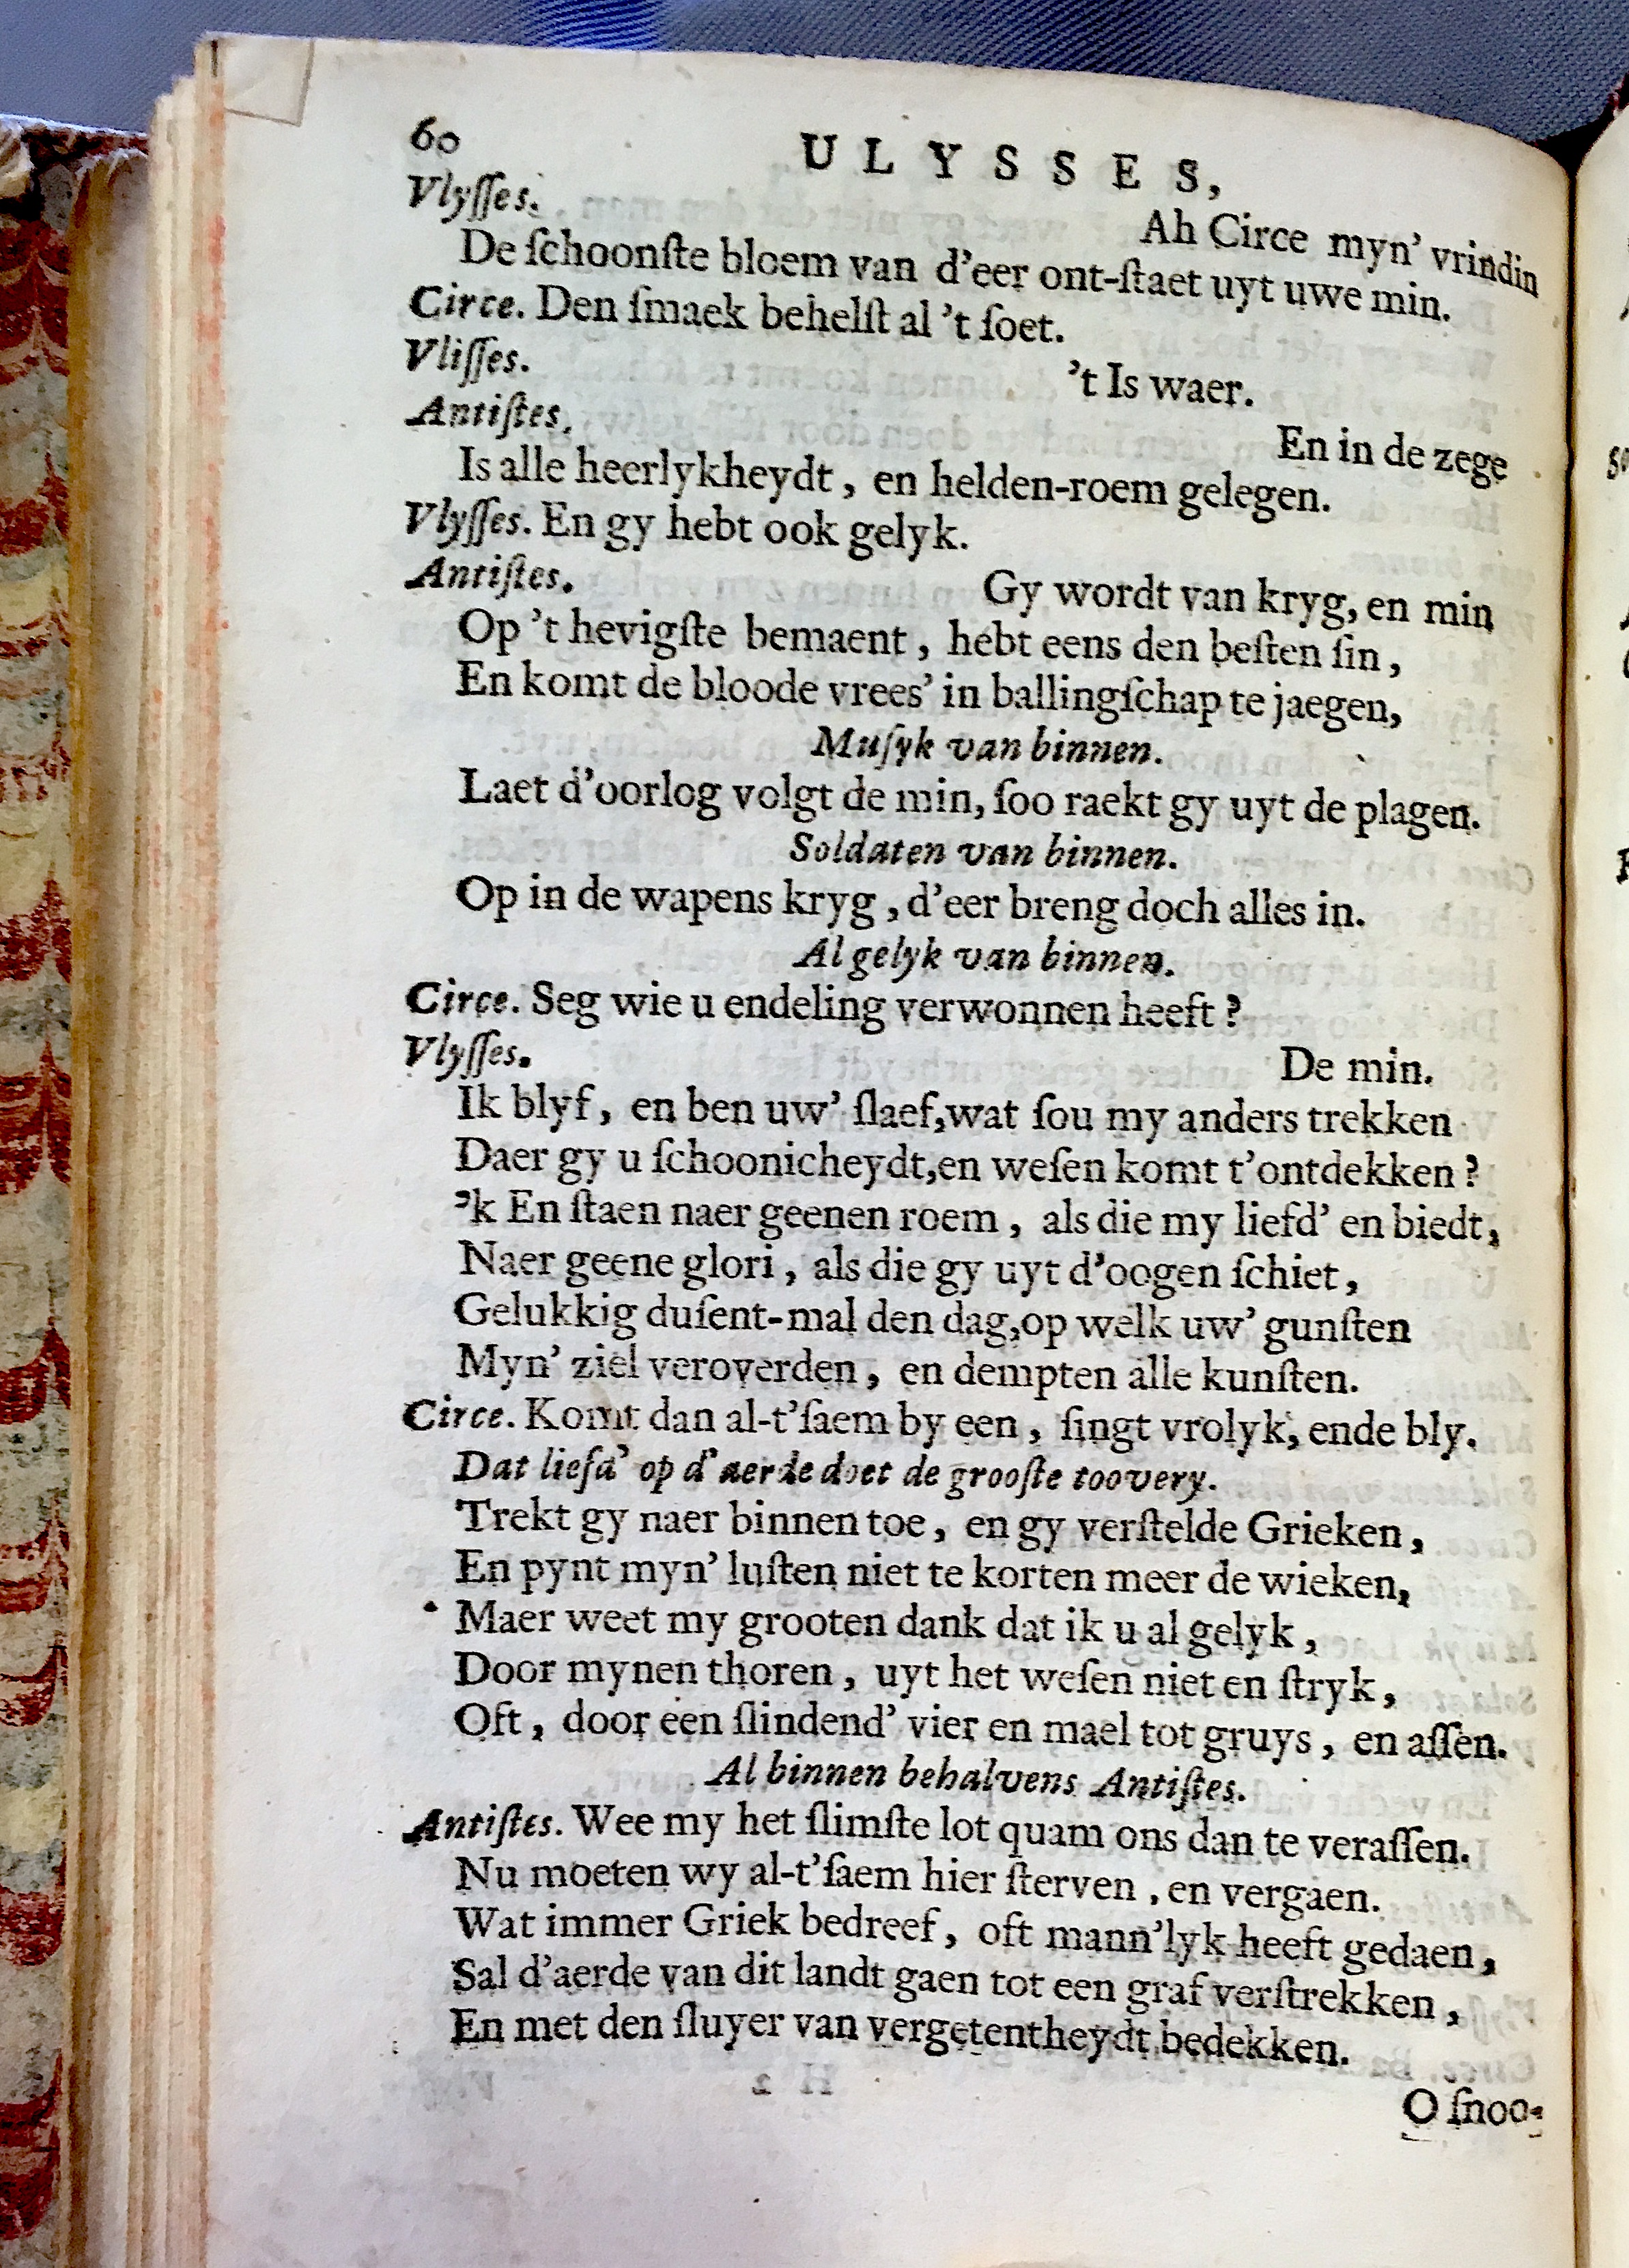 60
ULYSSES,
Vlyſſes.
Ah Circe myn' vrindin
De ſchoonſte bloem van d'eer ont-ſtaet uyt uwe min.
Circe. Den ſmaek behelſt al 't ſoet.
Vliſſes.
't Is waer.
Antiſtes.
En in de zege
Is alle heerlykheydt, en helden-roem gelegen.
Vlyſſes. En gy hebt ook gelyk.
Antiſtes.
Gy wordt van kryg, en min
Op 't hevigſte bemaent, hebt eens den beſten ſin,
En komt de bloode vrees' in ballingſchap te jaegen,
Muſyk van binnen.
Laet d'oorlog volgt de min, ſoo raekt gy uyt de plagen.
Soldaten van binnen.
Op in de wapens kryg, d'eer breng doch alles in.
Al gelyk van binnen.
Circe. Seg wie u endeling verwonnen heeft?
Vlyſſes.
De min.
Ik blyf, en ben uw' ſlaef, wat ſou my anders trekken
Daer gy u ſchoonicheydt, en weſen komt t'ontdekken?
'k En ſtaen naer geenen roem, als die my liefd' en biedt,
Naer geene glori, als die gy uyt d'oogen ſchiet,
Gelukkig duſent-mal den dag, op welk uw' gunſten
Myn' ziel veroverden, en dempten alle kunſten.
Circe. Komt dan al-t'ſaem by een, ſingt vrolyk, ende bly.
Dat liefd' op d'aerde doet de grooſte toovery.
Trekt gy naer binnen toe, en gy verſtelde Grieken,
En pynt myn' luſten niet te korten meer de wieken,
Maer weet my grooten dank dat ik u al gelyk,
Door mynen thoren, uyt het weſen niet en ſtryk,
Oft, door een ſlindend' vier en mael tot gruys, en aſſen.
Al binnen behalvens Antiſtes.
Antiſtes. Wee my het ſlimſte lot quam ons dan te veraſſen.
Nu moeten wy al-t'ſaem hier ſterven, en vergaen.
Wat immer Griek bedreef, oft mann'lyk heeft gedaen,
Sal d'aerde van dit landt gaen tot een graf verſtrekken,
En met den ſluyer van vergetentheydt bedekken.
O ſnoo-